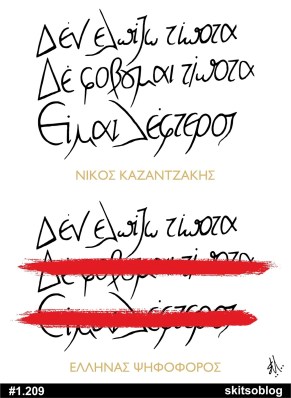 Δέν ελπίζω τίποτα
Δέ φοβούμαι τίποτα
Είμαι λέφτερος
ΝΙΚΟΣ ΚΑΖΑΝΤΖΑΚΗΣ
Δέν ελπίζω τίποτα
Δέ φοβούμαι τίποτα
Είμαι λέφτερος
ΕΛΛΗΝΑΣ ΨΗΦΟΦΟΡΟΣ
#1.209
skitsoblog